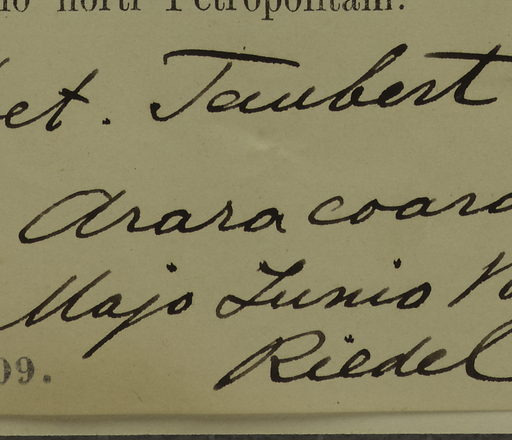 horti Petropolitani.
et. Taubert
Araracoara
Majo Junio
Riedel
09.